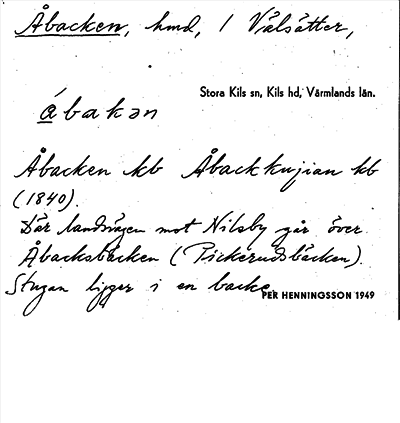 Åbacken, hmd, 1 Välsätter,
Stora Kils sn, Kils hd, Värmlands län.
åbakən
Åbacken kb Åbackkujian kb
(1840).
Där landsvägen mot Nilsby går över
Åbacksbäcken (Pickerudsbäcken).
Stugan ligger i en backe.
PER HENNINGSSON 1949